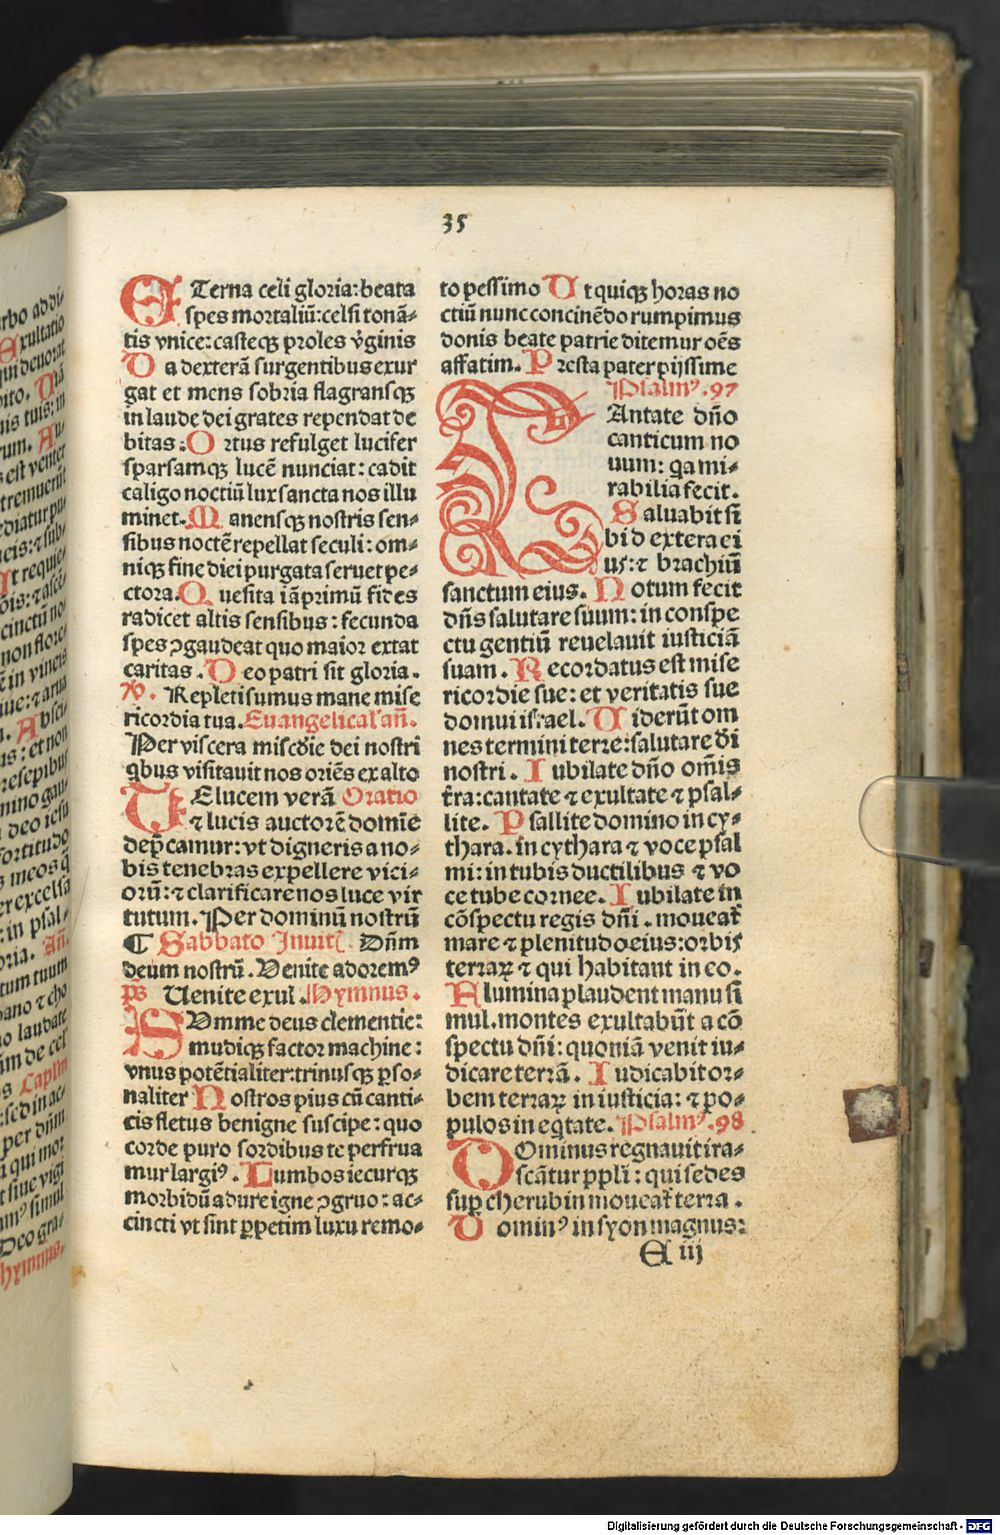 35
ETerna celi gloria: beata
spes mortaliū: celsi tonā⸗
tis vnice: casteqꝫ proles v̓ginis
Da dexterā surgentibus exur
gat et mens sobria flagransqꝫ
in laude dei grates rependat de
bitas: Ortus refulget lucifer
sparsamqꝫ lucē nunciat: cadit
caligo noctiū lux sancta nos illu
minet. Manensqꝫ nostris sen⸗
sibus noctē repellat seculi: om⸗
niqꝫ fine diei purgata seruet pe⸗
ctora. Quesita iā primū fides
radicet altis sensibus: secunda
spes ꝯgaudeat quo maior extat
caritas. Deo patri sit gloria.
℣. Repleti sumus mane mise
ricordia tua. Euangelical' añ.
Per viscera misc̄die dei nostri
qbus visitauit nos oriēs ex alto
TE lucem verā Oratio
⁊ lucis auctorē domīe
dep̄camur: vt digneris a no⸗
bis tenebras expellere vici⸗
orū: ⁊ clarificare nos luce vir
tutum. Per dominū nostrū
¶ Sabbato Inuit. Dñm
deum nostrū. Venite adoremꝰ
ps̄ Uenite exul. Hymnus.
SUmme deus clementie:
mūdiqꝫ factor machine:
vnus potētialiter: trinusqꝫ ꝑso⸗
naliter Nostros pius cū canti⸗
cis fletus benigne suscipe: quo
corde puro sordibus te perfrua
mur largiꝰ. Lumbos iecurqꝫ
morbidū adure igne ꝯgruo: ac⸗
cincti vt sint ꝑpetim luxu remo⸗
to pessimo Ut quiqꝫ horas no
ctiū nunc concinēdo rumpimus
donis beate patrie ditemur oēs
affatim. Presta pater pijssime
Psalmꝰ. 97
CAntate dño
canticum no
uum: qa mi⸗
rabilia fecit.
Saluabit si
bi dextera ei
us: ⁊ brachiū
sanctum eius. Notum fecit
dñs salutare suum: in conspe
ctu gentiū reuelauit iusticiā
suam. Recordatus est mise
ricordie sue: et veritatis sue
domui israel. Uiderūt om
nes termini terre: salutare d̄i
nostri. Iubilate dño om̄is
t̄ra: cantate ⁊ exultate ⁊ psal⸗
lite. Psallite domino in cy⸗
thara. in cythara ⁊ voce psal
mi: in tubis ductilibus ⁊ vo
ce tube cornee. Iubilate in
cōspectu regis dñi. moueat᷑
mare ⁊ plenitudo eius: orbis
terraꝝ ⁊ qui habitant in eo.
Flumina plaudent manu si
mul. montes exultabūt a cō
spectu dñi: quoniā venit iu⸗
dicare terrā. Iudicabit or⸗
bem terraꝝ in iusticia: ⁊ po⸗
pulos in eqtate. Psalmꝰ. 98
DOminus regnauit ira⸗
scātur ppli: qui sedes
suꝑ cherubin moueat᷑ terra.
Dominꝰ in syon magnus:
E iij
Digitalisierung gefördert durch die Deutsche Forschungsgemeinschaft - DFG